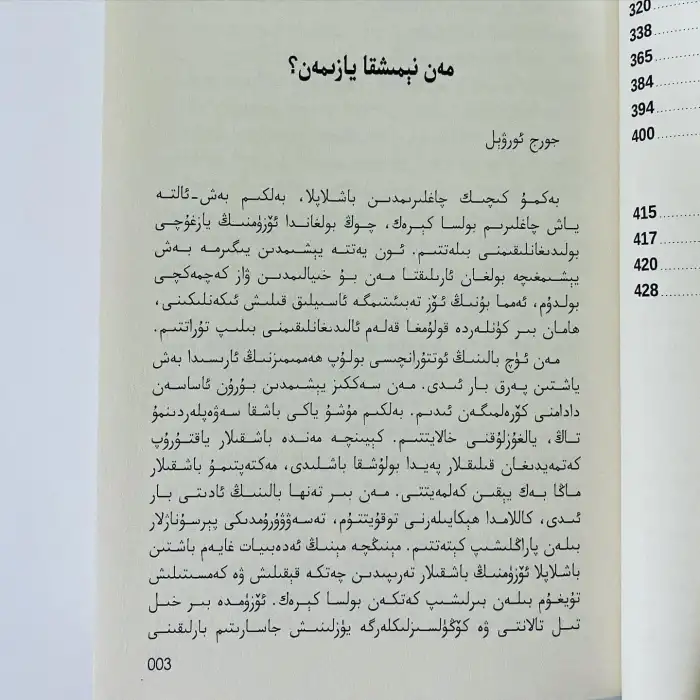 مەن نېمىشقا يازىمەن؟
جورج ئورۋېل
بەكمۇ كىچىك چاغلىرىمدىن باشلاپلا، بەلكىم بەش-ئالتە
ياش چاغلىرىم بولسا كېرەك، چوڭ بولغاندا ئۆزۈمنىڭ يازغۇچى
بولىدىغانلىقىمنى بىلەتتىم. ئون يەتتە يېشىمدىن يىگىرمە بەش
يېشىمغىچە بولغان ئارىلىقتا مەن بۇ خىيالىمدىن ۋاز كەچمەكچى
بولدۇم، ئەمما بۇنىڭ ئۆز تەبىئىتىمگە ئاسىيلىق قىلىش ئىكەنلىكىنى،
ھامان بىر كۈنلەردە قولۇمغا قەلەم ئالىدىغانلىقىمنى بىلىپ تۇراتتىم.
مەن ئۈچ بالىنىڭ ئوتتۇرانچىسى بولۇپ ھەممىمىزنىڭ ئارىسىدا بەش
ياشتىن پەرق بار ئىدى. مەن سەككىز يېشىمدىن بۇرۇن ئاساسەن
دادامنى كۆرەلمىگەن ئىدىم. بەلكىم مۇشۇ ياكى باشقا سەۋەپلەردىنمۇ
تاڭ، يالغۇزلۇقنى خالايتتىم. كېيىنچە مەندە باشقىلار ياقتۇرۇپ
كەتمەيدىغان قىلىقلار پەيدا بولۇشقا باشلىدى، مەكتەپتىمۇ باشقىلار
ماڭا بەك يېقىن كەلمەيتتى. مەن بىر تەنھا بالىنىڭ ئادىتى بار
ئىدى، كاللامدا ھېكايىلەرنى توقۇيتتۇم، تەسەۋۋۇرۇمدىكى پېرسۇناژلار
بىلەن پاراڭلىشىپ كېتەتتىم. مېنىڭچە مېنىڭ ئەدەبىيات غايەم باشتىن
باشلاپلا ئۆزۈمنىڭ باشقىلار تەرىپىدىن چەتكە قېقىلىش ۋە كەمسىتىلىش
تۇيغۇم بىلەن بىرلىشىپ كەتكەن بولسا كېرەك. ئۆزۈمدە بىر خىل
تىل تالانتى ۋە كۆڭۈلسىزلىكلەرگە يۈزلىنىش جاسارىتىم بارلىقىنى
003
320
338
365
384
394
400
415
417
420
428